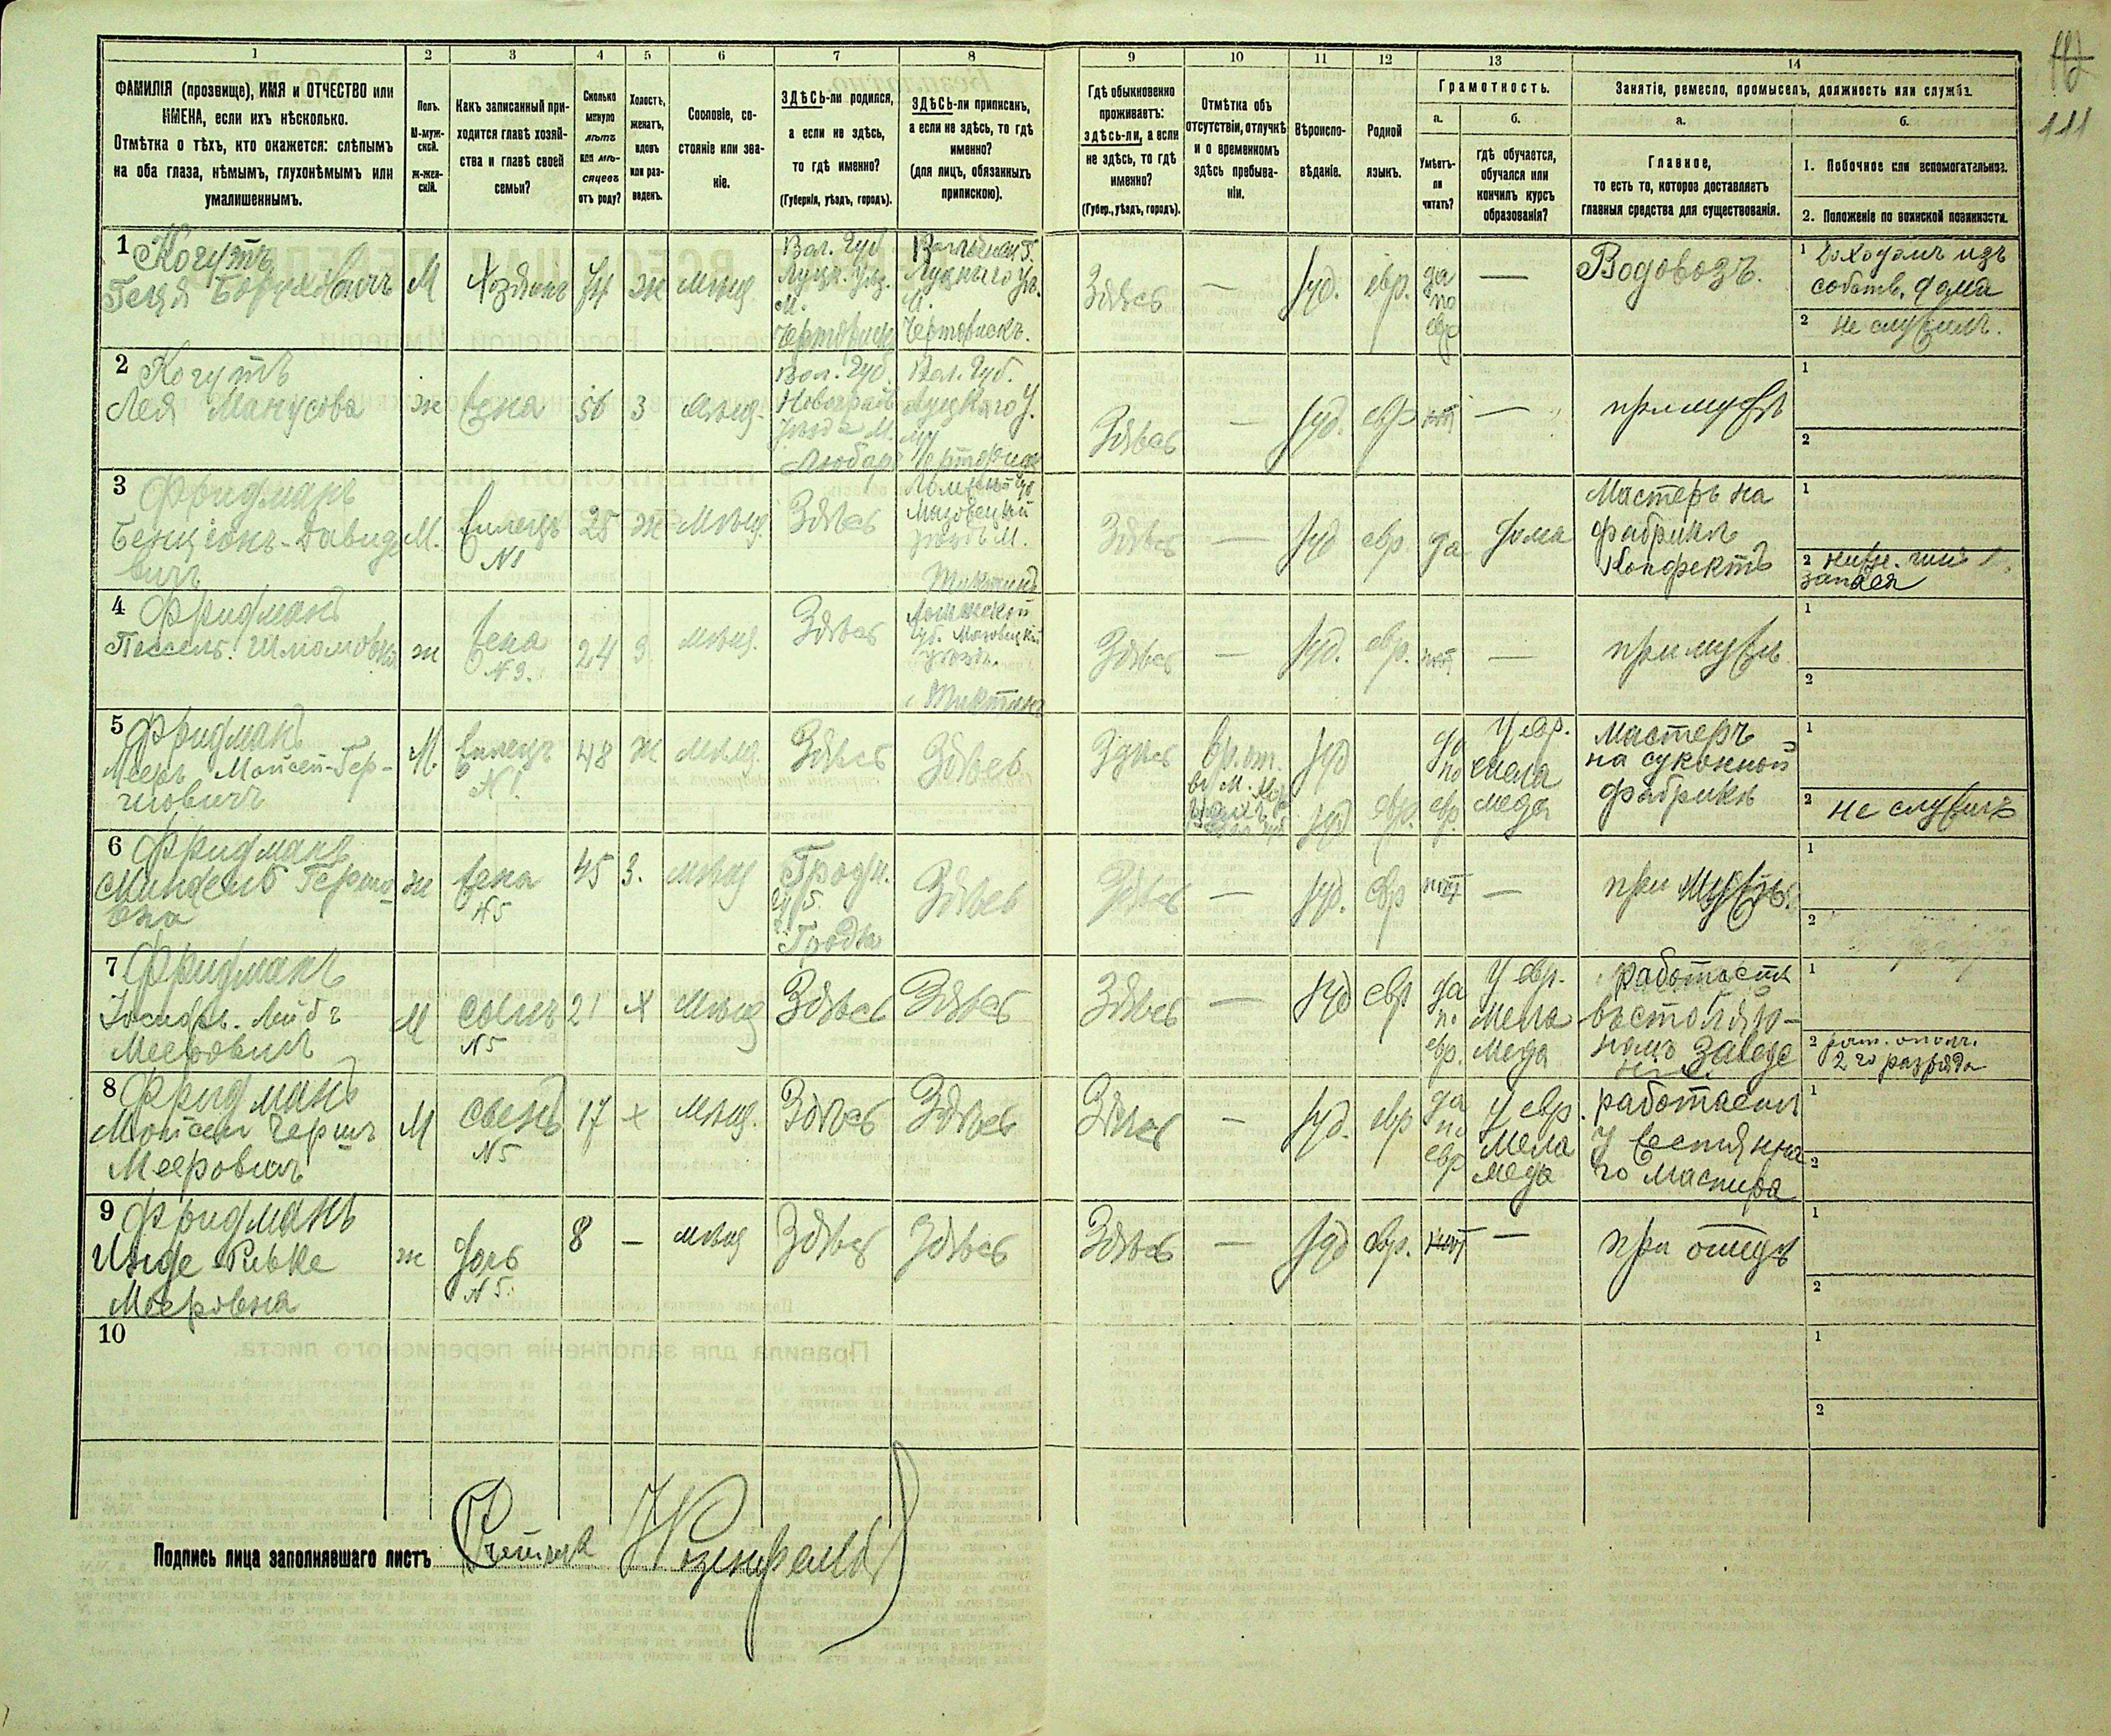 117
111
1 2 3 4 5 6 7 8 9 10 11 12 13 14
ФАМИЛІЯ (прозвище), ИМЯ и ОТЧЕСТВО или
ИМЕНА, если ихъ нѣсколько.
Отмѣтка о тѣхъ, кто окажется: слѣпымъ
на оба глаза, нѣмымъ, глухонѣмымъ или
умалишеннымъ.
Полъ.
М-муж-
ской.
ж-жен-
скій.
Какъ записанный при-
ходится главѣ хозяй-
ства и главѣ своей
семьи?
Сколько
минуло
лѣтъ
или мѣ-
сяцевъ
отъ роду?
Холостъ,
женатъ,
вдовъ
или раз-
веденъ.
Сословіе, со-
стояніе или зва-
ніе.
ЗДѢСЬ-ли родился,
а если не здѣсь,
то гдѣ именно?
(Губернія, уѣздъ, городъ).
ЗДѢСЬ-ли приписанъ,
а если не здѣсь, то гдѣ
именно?
(для лицъ, обязанныхъ
припискою).
Гдѣ обыкновенно
проживаетъ:
здѣсь-ли, а если
не здѣсь, то гдѣ
именно?
(Губер., уѣздъ, городъ).
Отмѣтка объ
отсутствіи, отлучкѣ
и о временномъ
здѣсь пребыва-
ніи.
Вѣроиспо-
вѣданіе.
Родной
языкъ.
Грамотность.
а.
Умѣетъ-
ли
читать?
б.
гдѣ обучается,
обучался или
кончилъ курсъ
образованія?
Занятіе, ремесло, промыселъ, должность или служба.
а.
Главное,
то есть то, которое доставляетъ
главныя средства для существованія.
б.
1. Побочное или вспомогательное.
2. Положеніе по воинской повинности.
1 Когутъ
Геця Боруховичъ
М
Хозяинъ
74
ж
мѣщ.
Вол. Губ
Луцк. уѣз.
М.
Волынск. Г.
Луцкаго уѣ.
М.
Здѣсь
—
іуд.
евр.
да
по
евр
—
Водовозъ.
1 Доходомъ изъ
собств. дома
2 не служилъ.
2 Когутъ
Лея Манусова
ж
жена
56
з
мѣщ.
Вол. Губ.
Новоград
уѣзда М.
Любар
Вол. Губ.
Луцкаго У.
М
Здѣсь
—
іуд.
евр
нѣт
—
при мужѣ
1
2
3 Фридманъ
Бенціонъ-Давидо
вичъ
М.
жилецъ
N1
25
ж
мѣщ.
Здѣсь
Мазовецкій
уѣздъ М.
Здѣсь
—
іуд
евр.
да
дома
Мастеръ на
фабрикѣ
конфектъ
1
2 нижн. чинъ
запаса
4 Фридманъ
Пессель Шломовна
ж
жена
N.3.
24
з.
мѣщ.
Здѣсь
Ломжской
Губ. Мазовецкій
уѣздъ.
Здѣсь
—
іуд.
евр.
нѣт
—
при мужѣ
1
2
5 Фридманъ
Мееръ Мойсей-Гер-
шовичъ
М
жилецъ
N1
48
ж
мѣщ.
Здѣсь
Здѣсь
Здѣсь
вр. от.
въ М.
іуд
іуд
евр.
да
по
евр.
У евр.
мела
меда
мастеръ
на суконной
фабрикѣ
1
2 не служилъ
6 Фридманъ
Миндель Герше
вна
ж
жена
N5
45
з.
мѣщ
Гродн.
Гродна
Здѣсь
Здѣсь
—
іуд.
евр
нѣт
—
при мужѣ.
1
2
7 Фридманъ
Іосифъ. Лейбъ
Мееровичъ
М
сынъ
N5
21
х
мѣщ
Здѣсь
Здѣсь
Здѣсь
—
іуд
евр
да
по
евр.
У евр.
мела
меда
работаетъ
въ столяр-
номъ заведе
ніи.
1
2 рат. ополч.
2 го разряда
8 Фридманъ
Мойсей Гершъ
Мееровичъ
М
сынъ
N5
17
х
мѣщ.
Здѣсь
Здѣсь
Здѣсь
—
іуд.
евр
да
по
евр
У евр.
мела
меда
работаетъ
У жестянна
го мастера
1
2
9 Фридманъ
Инде Ривке
Мееровна
ж
дочь
N5.
8
—
мѣщ
Здѣсь
Здѣсь
Здѣсь
—
іуд
евр.
нѣт
—
при отцѣ
1
2
10
1
2
Подпись лица заполнявшаго листъ